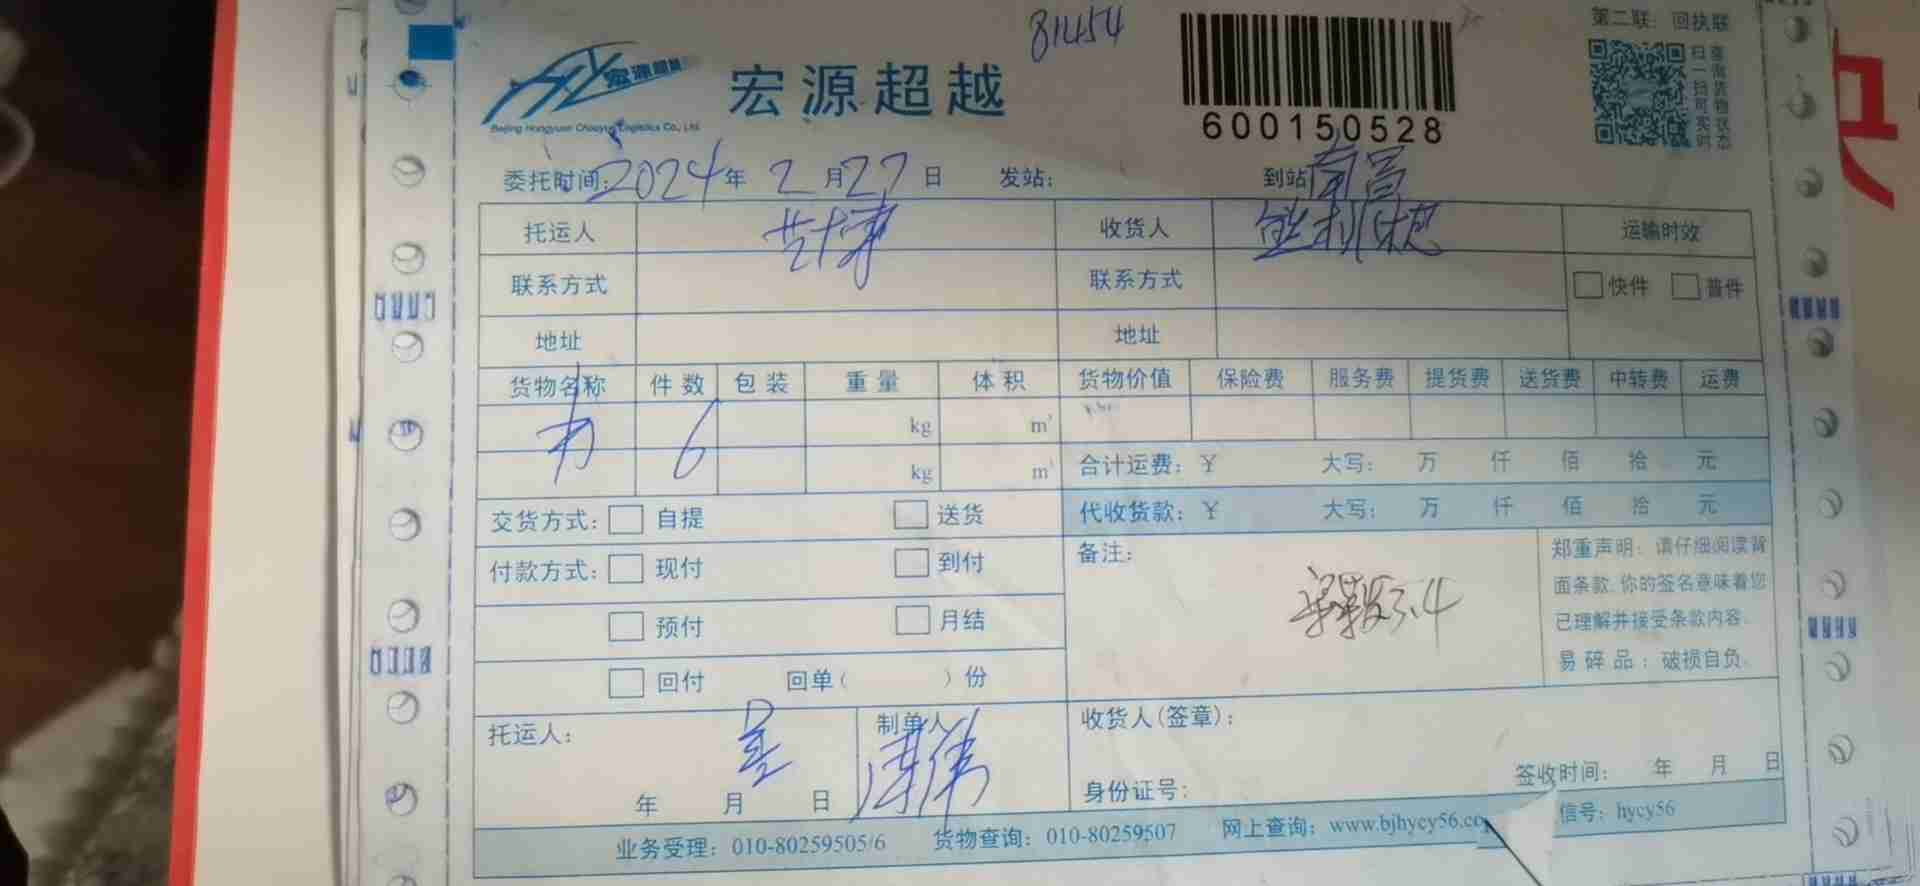 81454
第二联：回执联
宏源超越
宏源超越
Beijing Hongyuan Chaoyue Logistics Co., Ltd.
600150528
扫一扫可实时
查询货物状态
委托时间：2024年2月27日 发站： 到站：南昌
托运人 收货人 熊 运输时效
联系方式 联系方式 快件 普件
地址 地址
货物名称 件数 包装 重量 体积 货物价值 保险费 服务费 提货费 送货费 中转费 运费
6 kg m³
kg m³ 合计运费：￥ 大写： 万 仟 佰 拾 元
交货方式： 自提 送货 代收货款：￥ 大写： 万 仟 佰 拾 元
付款方式： 现付 到付 备注：
预付 月结
回付 回单（ ）份
郑重声明：请仔细阅读背
面条款.你的签名意味着您
已理解并接受条款内容.
易碎品：破损自负.
托运人： 制单人 收货人(签章)：
年 月 日 身份证号： 签收时间： 年 月 日
业务受理：010-80259505/6 货物查询：010-80259507 网上查询：www.bjhycy56.co 信号：hycy56